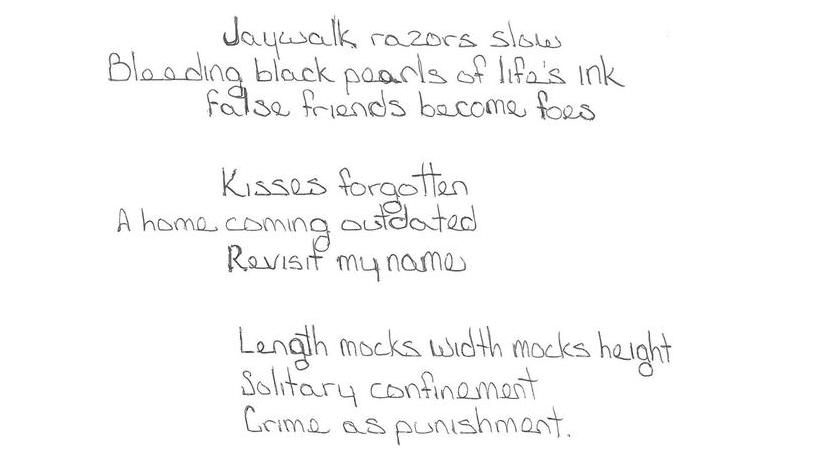 Jaywalk razors slow
Bleeding black pearls of life's ink
False friends become foes
Kisses forgotten
A home coming outdated
Revisit my name
Length mocks width mocks height
Solitary confinement
Crime as punishment.